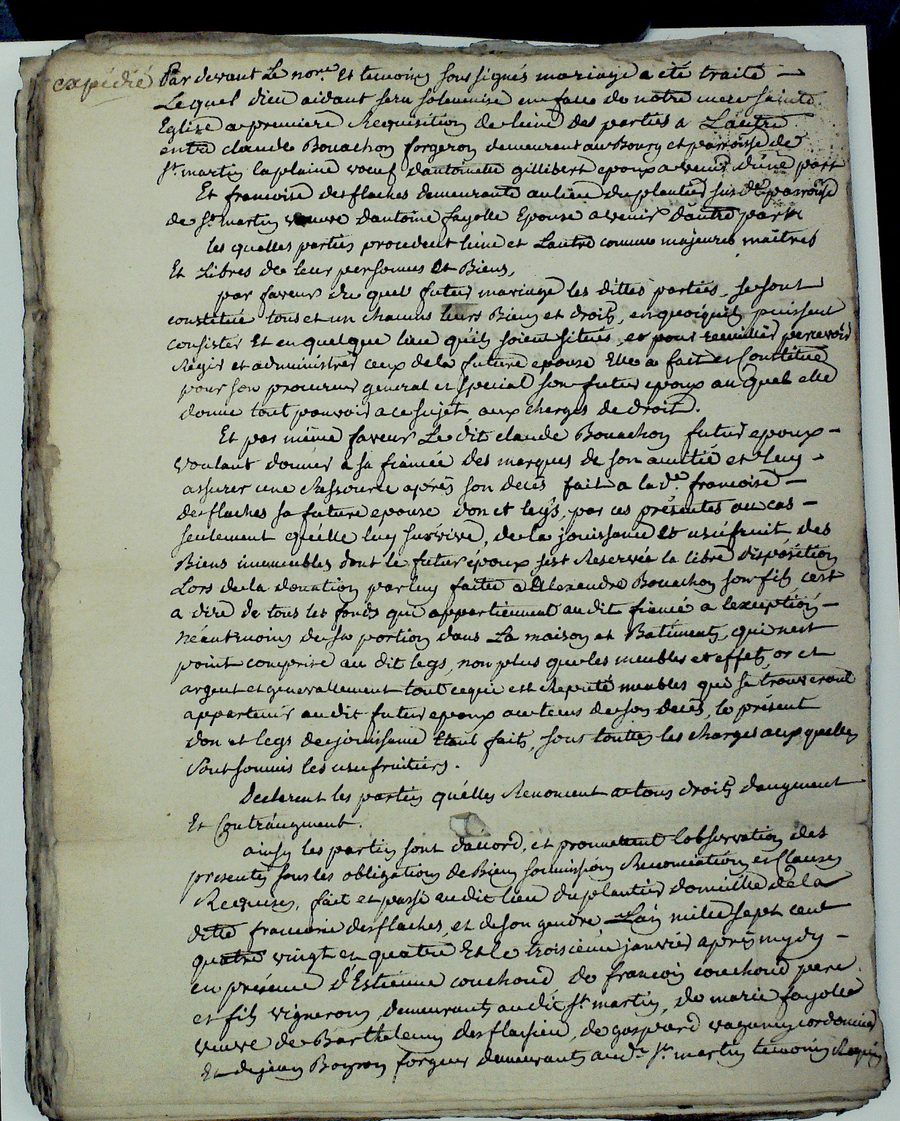 expédié
Par devant Le nore Et temoins sous signés mariage a eté traité
Lequel dieu aidant sera solemnisé en face de notre mere sainte
Eglise a premiere Requisition de lune des parties a Lautre
entre claude Bouachon forgeron demeurant au Bourg et parroisse de
st martin laplaine voeuf dantoinette gillibert epoux avenir d'une part
Et francoise desflaches demeurante au lieu du plantier susdte parroisse
de st martin veuve dantoine fayolle Epouse avenir dautre part
les quelles parties procedent lune et Lautre comme majeures maitres
Et Libres de leur personnes Et Biens,
par faveur du quel futur mariage les dittes parties, se sont
constitué tous et un chacuns leurs Biens et droits, en quoiquils puissent
consister Et en quelque lieu quils soient situés, et pour recuillir percevoir
Régir et administrer ceux de la future epouse Elle a fait et Constitué
pour son procureur general et special son futur epoux au quel elle
donne tout pouvoir a ce sujet aux charges de droit.
Et par même faveur Le dit claude Bouachon futur epoux
voulant donner a sa fiancée des marques de son amitié et luy
assurer une Ressource après son decès fait a lade francoise
desflaches sa future epouse don et legs, par ces présentes au cas
seulement qu'elle luy survive, de la jouissance et usufruit des
Biens immeubles dont le futur époux sest Reservée la libre disposition
Lors de la donation par luy faitte a Alexandre Bouachon son fils cest
a dire de tous les fonds qui appartiennent au dit fiancé a lexception
néantmoins de sa portion dans La maison et Batiments, qui nest
point comprise au dit legs, non plus que les meubles et effets, or et
argent et generallement tout ce qui est Reputé meubles qui se trouveront
appartenir au dit futur epoux au tems de son deces, le présent
don et legs de jouissance Etant faits, sous touttes les charges aux quelles
sont soumis les usufruitiers.
Declarent les parties qu'elles Renoncent a tous droits daugment
Et Contraugment.
ainsy les parties sont daccord, et promettent lobservation des
presentes sous les obligations de Biens soumissions Renonciations et Clauses
Requises, fait et passé audit lieu du plantier domicille de la
ditte francoise desflaches, et de son gendre Lan mille sept cent
quatre vingt et quatre Et le troisieme janvier après mydy
en présence d'Estienne couchoud de francois couchoud pere
et fils vignerons, demeurants au dit st martin, de marie fayolle
veuve de Barthelemy desflasieu, de gaspard vaganay cordonnier
Et de jean Boyron forgeur demeurants aud. st martin temoins Requis